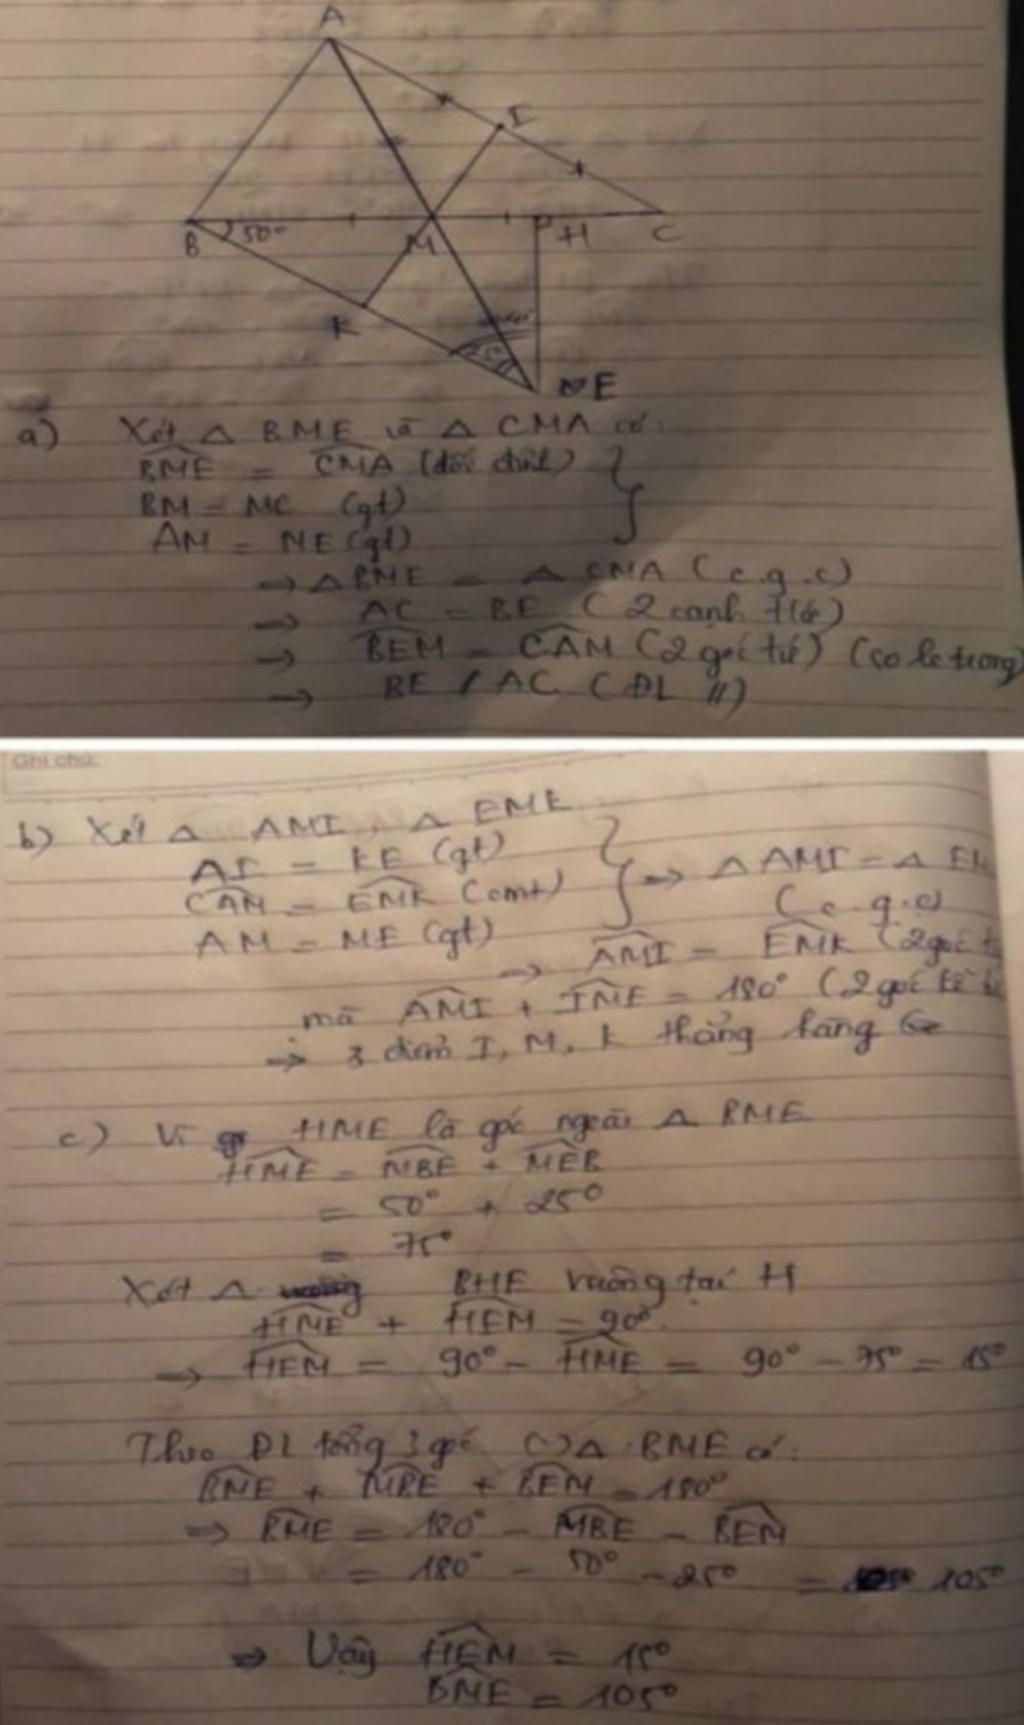 A
I
B 50° M H C
K
25°
E
a) Xét △ BME và △ CMA có:
BME = CMA (đối đỉnh)
BM = MC (gt)
AM = ME (gt)
→ △ BME = △ CMA (c.g.c)
→ AC = BE (2 cạnh tứ)
→ BEM = CAM (2 góc tứ) (so le trong)
→ BE // AC (ĐL //)
Ghi chú:
b) Xét △ AMI, △ EMK
AI = KE (gt)
CAM = EMK (cmt)
AM = ME (gt)
⇒ △ AMI = △ EM
(c.g.c)
→ AMI = EMK (2 góc t
mà AMI + IME = 180° (2 góc kề b
→ 3 điểm I, M, K thẳng hàng
c) Vì HME là góc ngoài △ BME
HME = MBE + MEB
= 50° + 25°
= 75°
Xét △ BHE vuông tại H
HME + HEM = 90°
⇒ HEM = 90° - HME = 90° - 75° = 15°
Theo ĐL tổng 3 góc △ BME có:
BME + MBE + BEM = 180°
⇒ BME = 180° - MBE - BEM
= 180° - 50° - 25° = 105°
⇒ Vậy HEM = 15°
BME = 105°